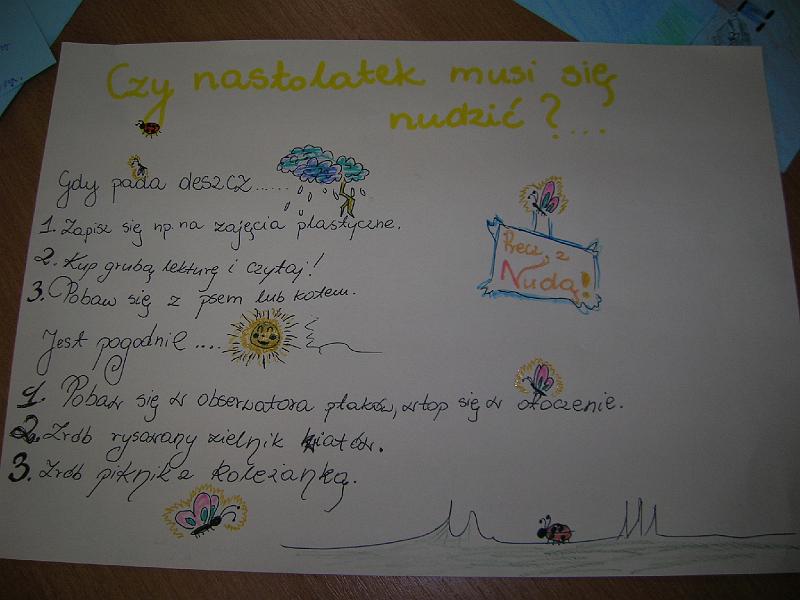 Czy nastolatek musi się
nudzić?...
Gdy pada deszcz......
1. Zapisz się np. na zajęcia plastyczne.
2. Kup grubą lekturę i czytaj!
3. Pobaw się z psem lub kotem.
Precz z
Nudą!
Jest pogodnie....
1. Pobaw się w obserwatora ptaków, wtop się w otoczenie.
2. Zrób rysowany zielnik kwiatów.
3. Zrób piknik z koleżanką.